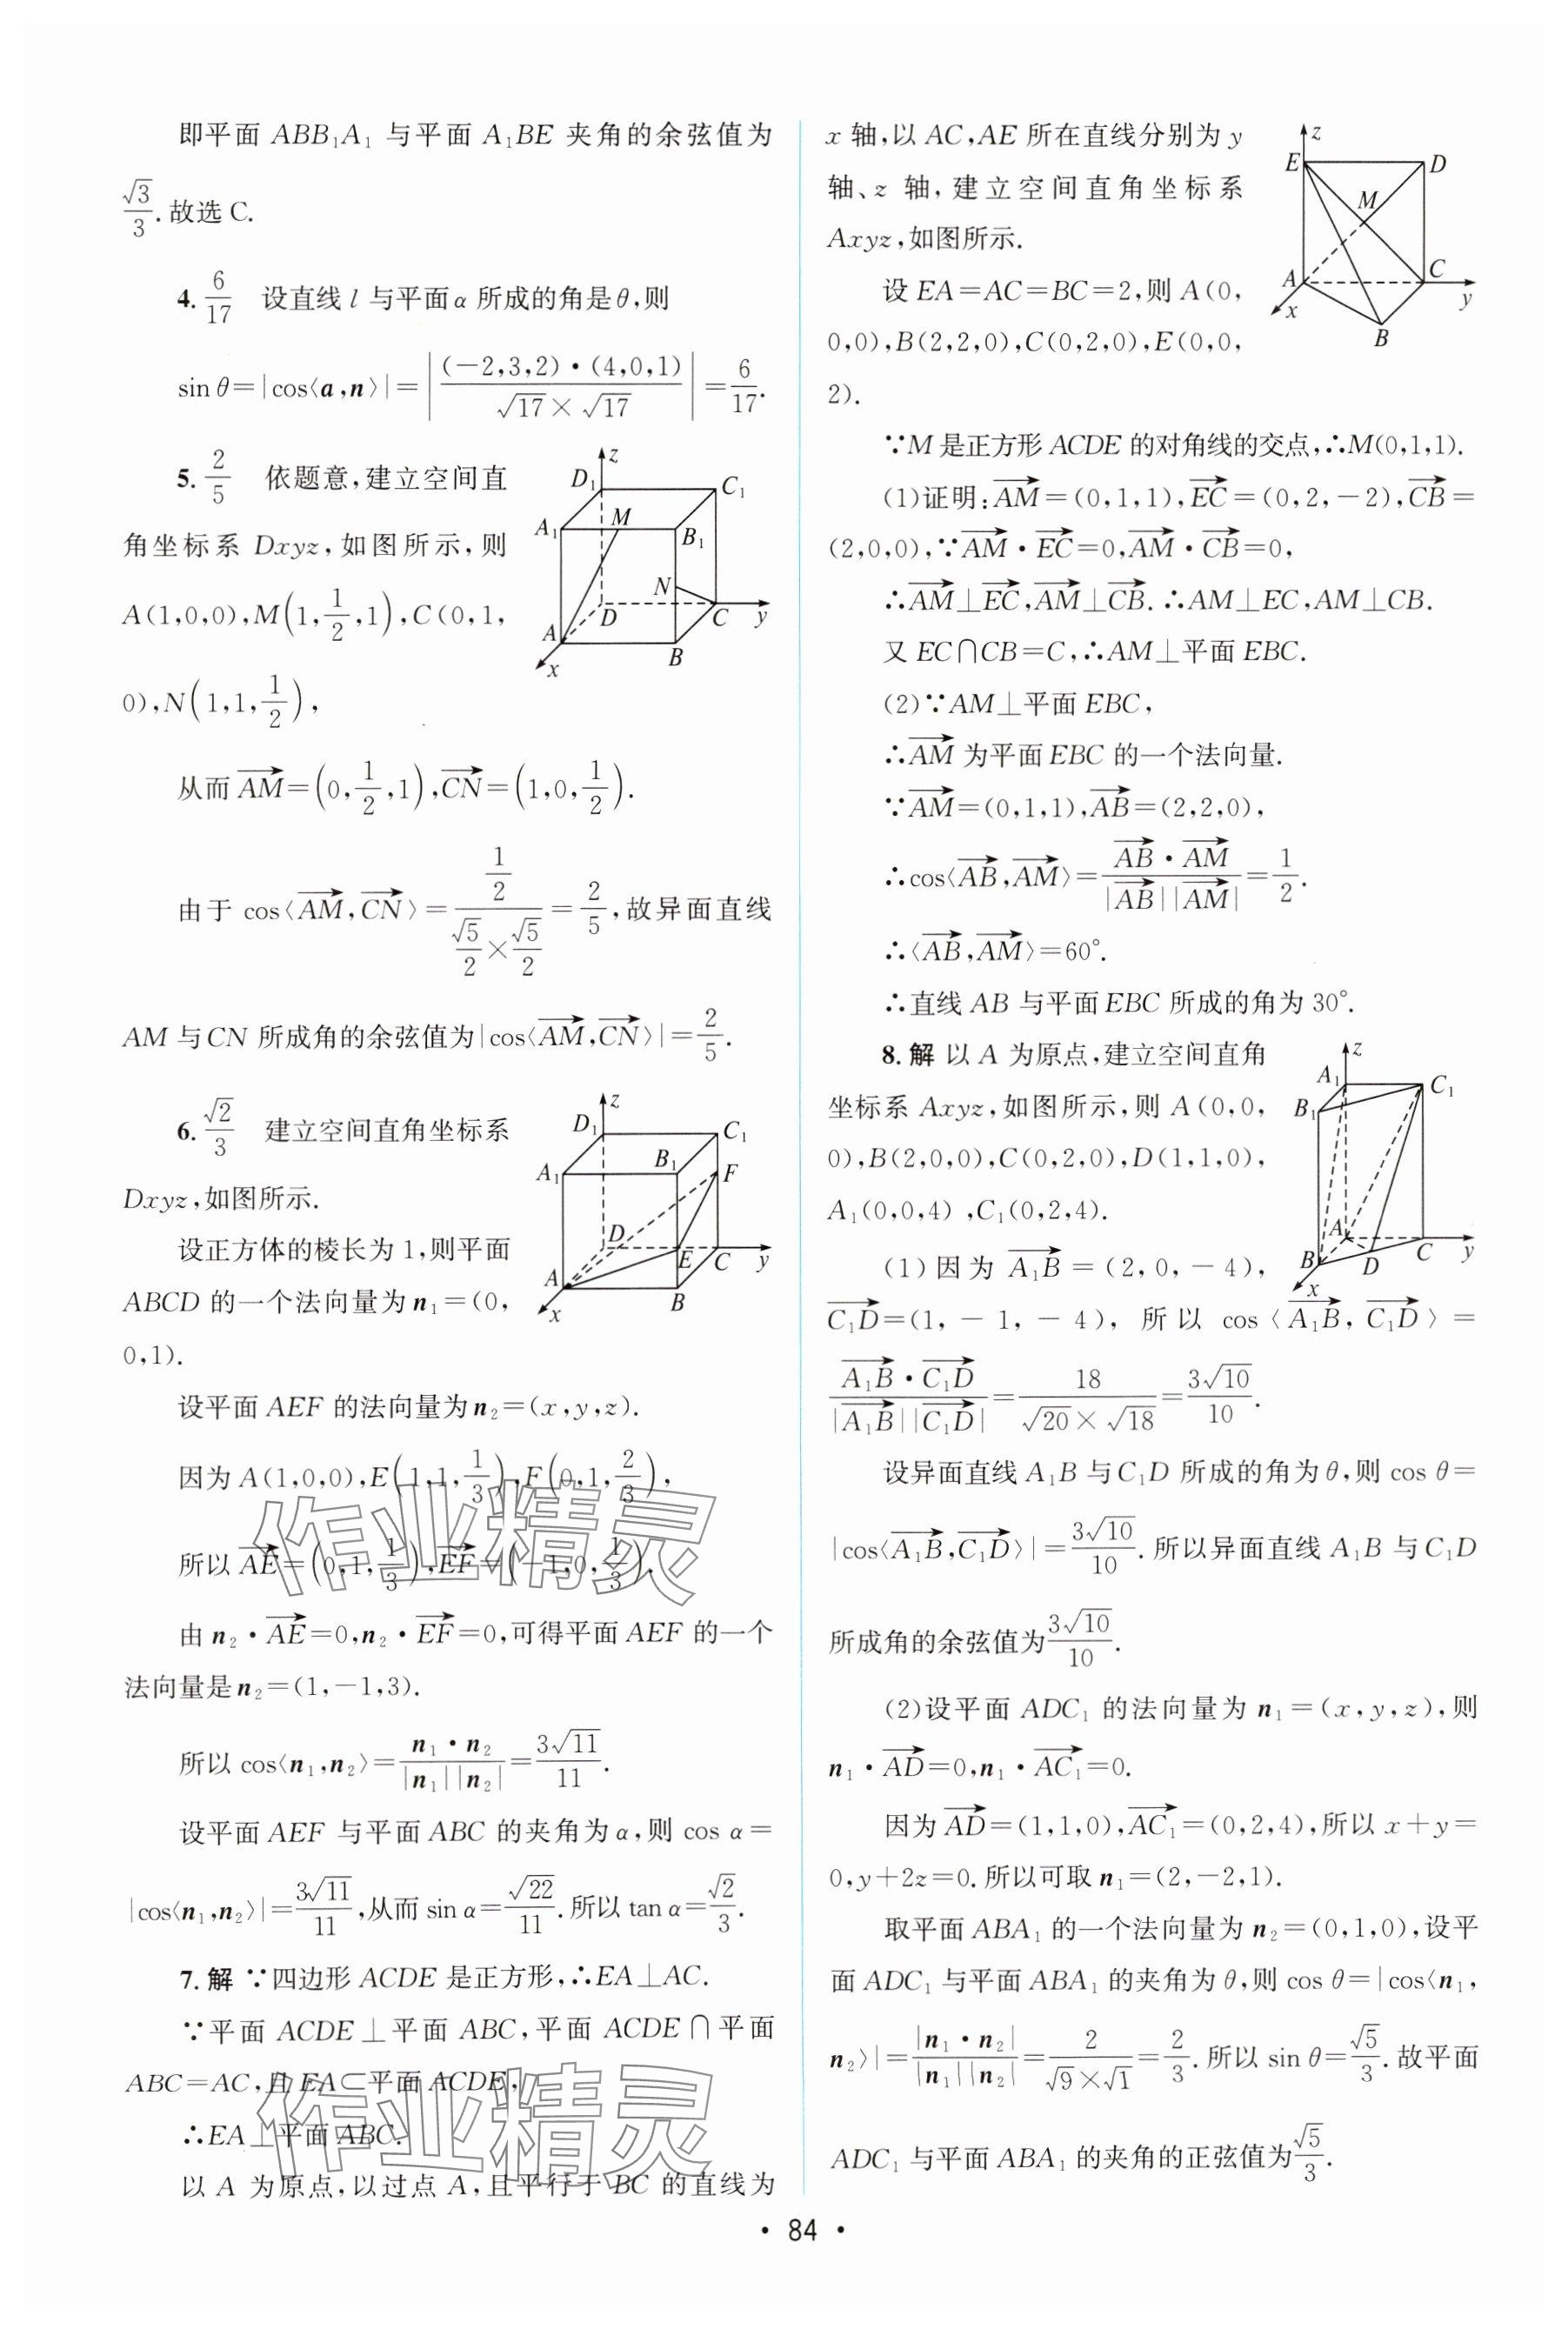 即平面 ABB₁A₁ 与平面 A₁BE 夹角的余弦值为
√3/3. 故选 C.
4. 6/17 设直线 l 与平面 α 所成的角是 θ,则
sin θ=|cos⟨a,n⟩|=|(-2,3,2)·(4,0,1)/(√17×√17)|=6/17.
5. 2/5 依题意,建立空间直
角坐标系 Dxyz,如图所示,则
A(1,0,0),M(1,1/2,1),C(0,1,
0),N(1,1,1/2),
z
D₁
C₁
A₁
M
B₁
N
D
C
y
A
B
x
从而 AM→=(0,1/2,1),CN→=(1,0,1/2).
由于 cos⟨AM→,CN→⟩=(1/2)/(√5/2×√5/2)=2/5,故异面直线
AM 与 CN 所成角的余弦值为|cos⟨AM→,CN→⟩|=2/5.
6. √2/3 建立空间直角坐标系
Dxyz,如图所示.
设正方体的棱长为 1,则平面
ABCD 的一个法向量为 n₁=(0,
0,1).
z
D₁
C₁
A₁
B₁
F
D
E
C
y
A
B
x
设平面 AEF 的法向量为 n₂=(x,y,z).
因为 A(1,0,0),E(1,1,1/3),F(0,1,2/3),
所以 AE→=(0,1,1/3),EF→=(-1,0,1/3).
由 n₂·AE→=0,n₂·EF→=0,可得平面 AEF 的一个
法向量是 n₂=(1,-1,3).
所以 cos⟨n₁,n₂⟩=n₁·n₂/(|n₁||n₂|)=3√11/11.
设平面 AEF 与平面 ABC 的夹角为 α,则 cos α=
|cos⟨n₁,n₂⟩|=3√11/11,从而 sin α=√22/11. 所以 tan α=√2/3.
7. 解 ∵四边形 ACDE 是正方形,∴EA⊥AC.
∵平面 ACDE⊥平面 ABC,平面 ACDE∩平面
ABC=AC,且 EA⊂平面 ACDE,
∴EA⊥平面 ABC.
以 A 为原点,以过点 A,且平行于 BC 的直线为
x 轴,以 AC,AE 所在直线分别为 y
轴、z 轴,建立空间直角坐标系
Axyz,如图所示.
设 EA=AC=BC=2,则 A(0,
0,0),B(2,2,0),C(0,2,0),E(0,0,
2).
z
E
D
M
A
C
x
y
B
∵M 是正方形 ACDE 的对角线的交点,∴M(0,1,1).
(1)证明:AM→=(0,1,1),EC→=(0,2,-2),CB→=
(2,0,0),∵AM→·EC→=0,AM→·CB→=0,
∴AM→⊥EC→,AM→⊥CB→. ∴AM⊥EC,AM⊥CB.
又 EC∩CB=C,∴AM⊥平面 EBC.
(2)∵AM⊥平面 EBC,
∴AM→ 为平面 EBC 的一个法向量.
∵AM→=(0,1,1),AB→=(2,2,0),
∴cos⟨AB→,AM→⟩=AB→·AM→/(|AB→||AM→|)=1/2.
∴⟨AB→,AM→⟩=60°.
∴直线 AB 与平面 EBC 所成的角为 30°.
8. 解 以 A 为原点,建立空间直角
坐标系 Axyz,如图所示,则 A(0,0,
0),B(2,0,0),C(0,2,0),D(1,1,0),
A₁(0,0,4) ,C₁(0,2,4).
z
A₁
C₁
B₁
A
B
D
C
y
x
(1)因为 A₁B→=(2,0,-4),
C₁D→=(1,-1,-4),所以 cos⟨A₁B→,C₁D→⟩=
A₁B→·C₁D→/(|A₁B→||C₁D→|)=18/(√20×√18)=3√10/10.
设异面直线 A₁B 与 C₁D 所成的角为 θ,则 cos θ=
|cos⟨A₁B→,C₁D→⟩|=3√10/10. 所以异面直线 A₁B 与 C₁D
所成角的余弦值为 3√10/10.
(2)设平面 ADC₁ 的法向量为 n₁=(x,y,z),则
n₁·AD→=0,n₁·AC₁→=0.
因为 AD→=(1,1,0),AC₁→=(0,2,4),所以 x+y=
0,y+2z=0. 所以可取 n₁=(2,-2,1).
取平面 ABA₁ 的一个法向量为 n₂=(0,1,0),设平
面 ADC₁ 与平面 ABA₁ 的夹角为 θ,则 cos θ=|cos⟨n₁,
n₂⟩|=|n₁·n₂|/(|n₁||n₂|)=2/(√9×√1)=2/3. 所以 sin θ=√5/3. 故平面
ADC₁ 与平面 ABA₁ 的夹角的正弦值为 √5/3.
作业精灵
作业精灵
·84·